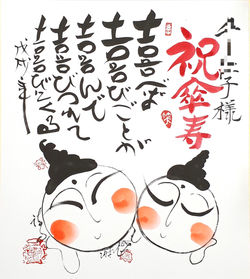 様
祝傘寿
喜べば
喜びごとが
喜んで
喜びつれて
喜びにくる
戊戌